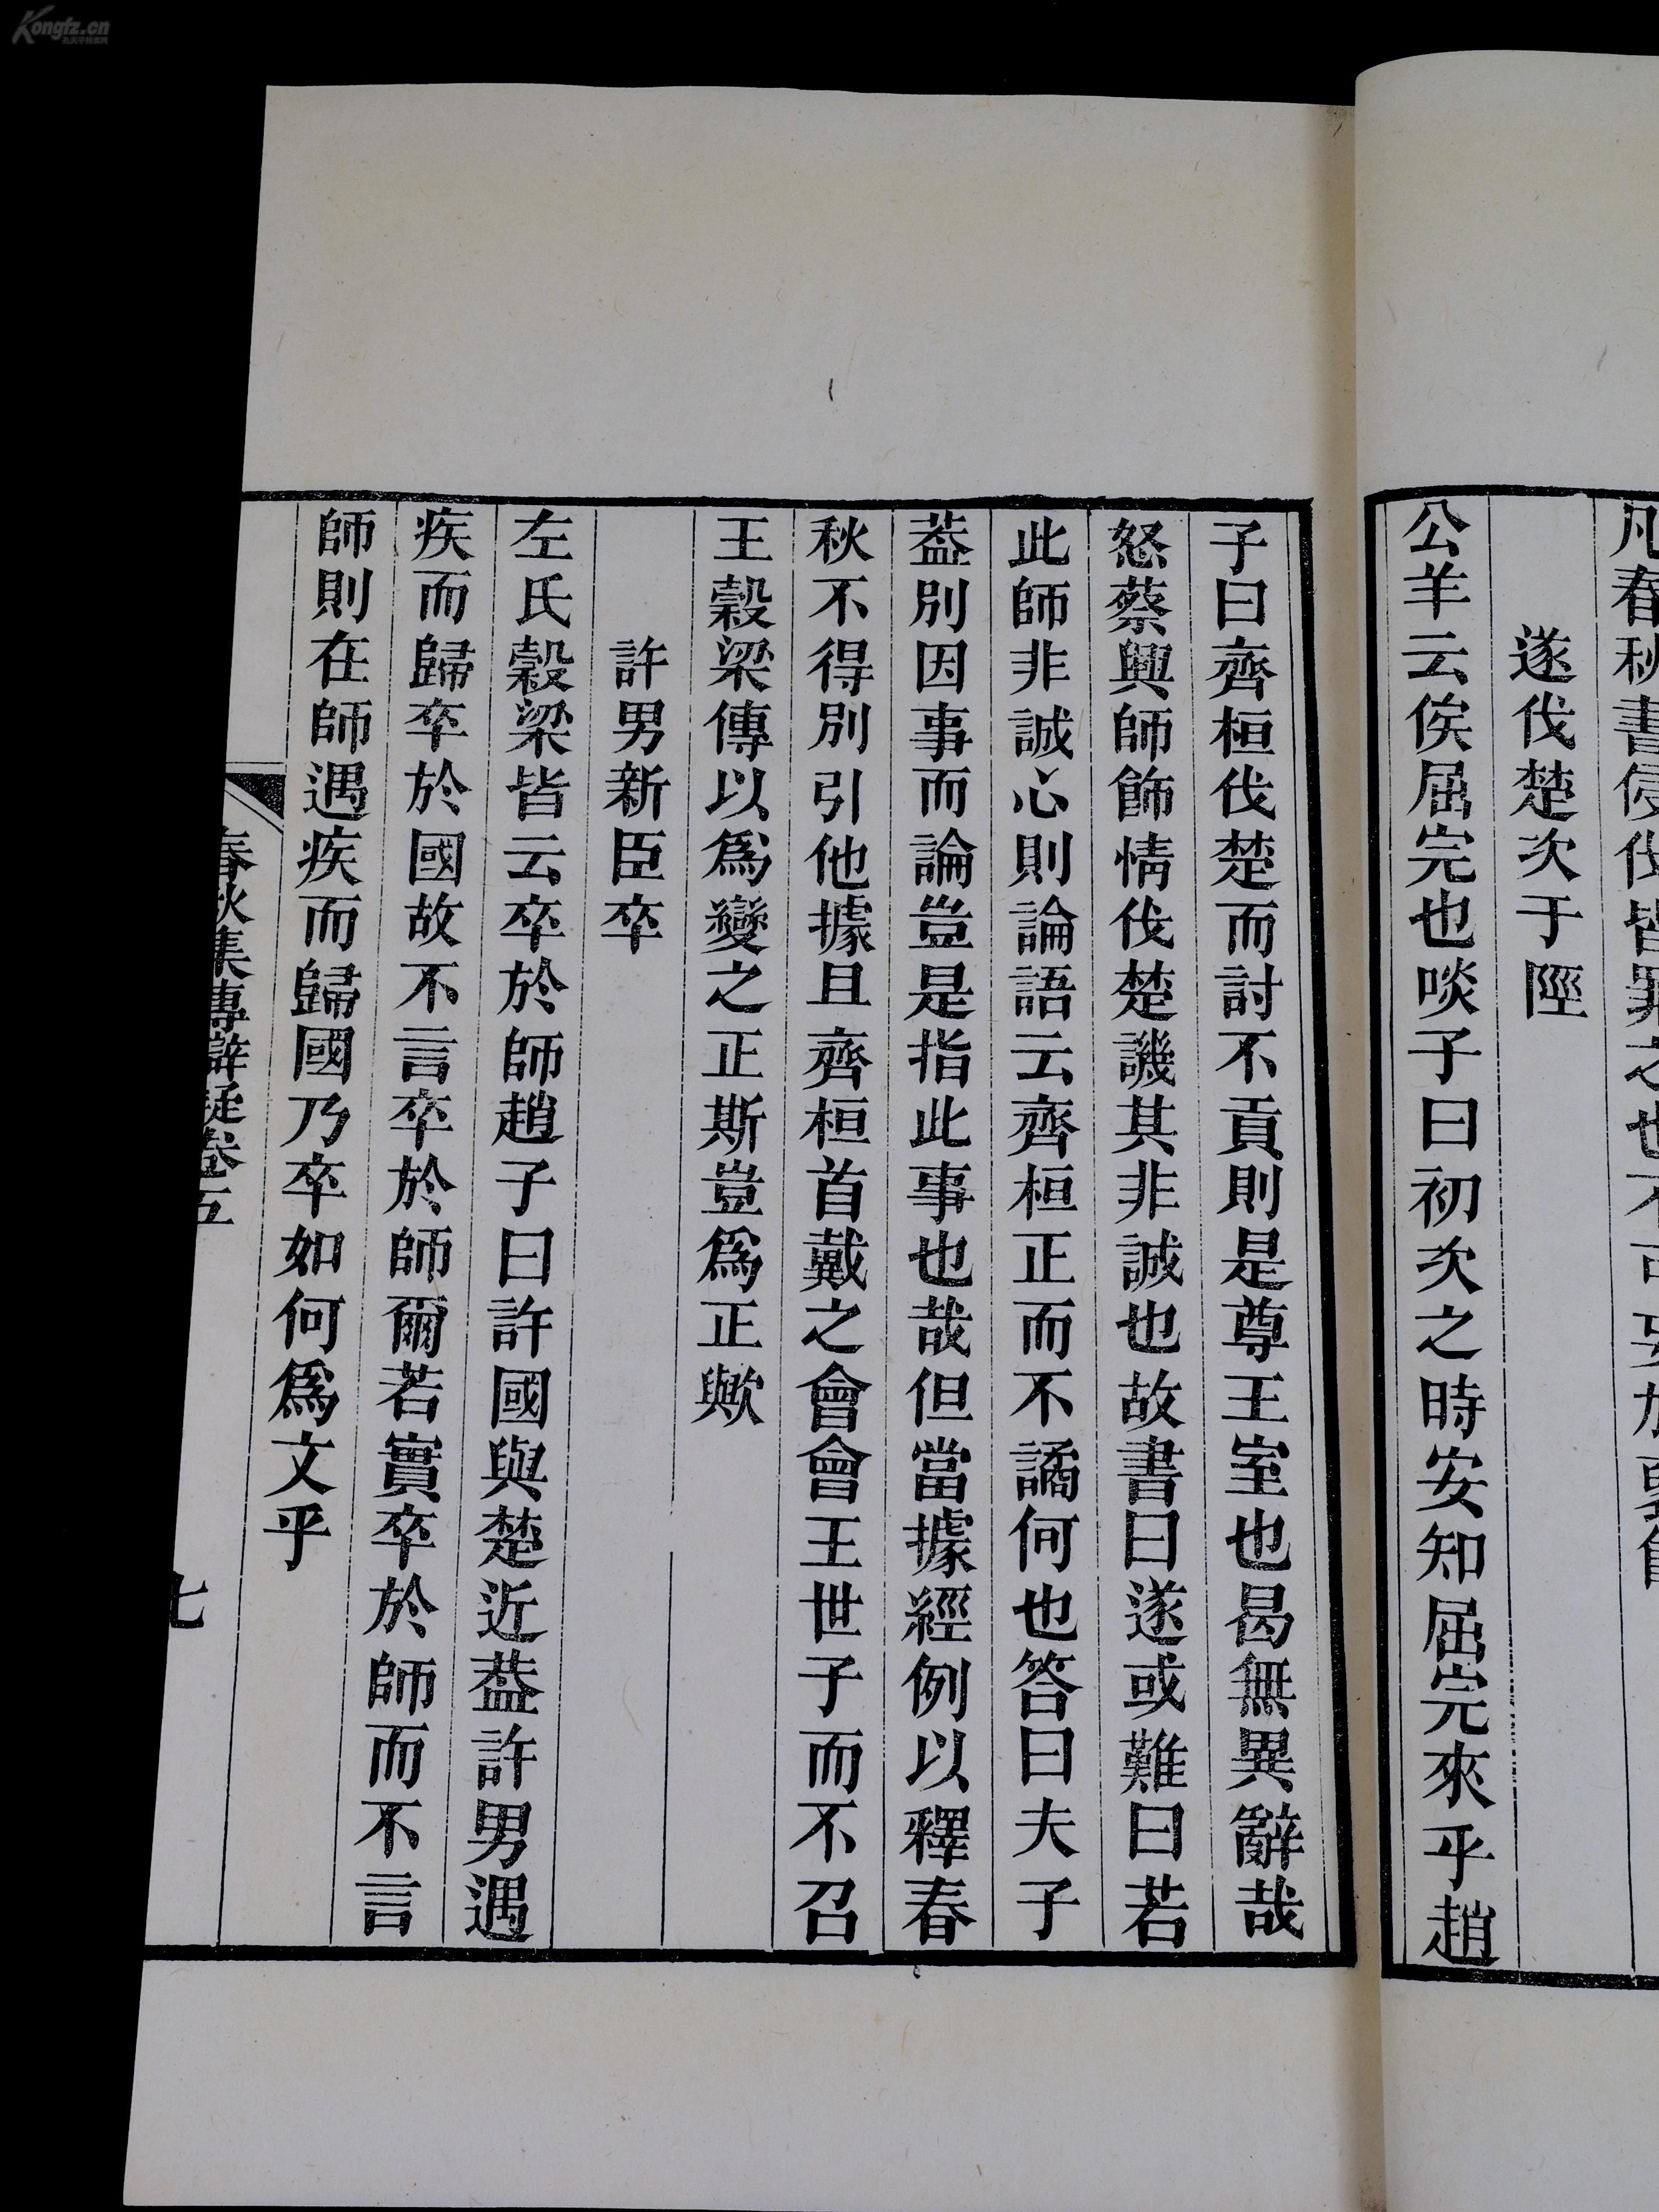 凡春秋書侵伐皆罪之也不可
遂伐楚次于陘
公羊云俟屈完也啖子曰初次之時安知屈完來乎趙
子曰齊桓伐楚而討不貢則是尊王室也曷無異辭哉
怒蔡興師飾情伐楚譏其非誠也故書曰遂或難曰若
此師非誠心則論語云齊桓正而不譎何也答曰夫子
葢別因事而論豈是指此事也哉但當據經例以釋春
秋不得別引他據且齊桓首戴之會會王世子而不召
王穀梁傳以為變之正斯豈為正歟
許男新臣卒
左氏穀梁皆云卒於師趙子曰許國與楚近葢許男遇
疾而歸卒於國故不言卒於師爾若實卒於師而不言
師則在師遇疾而歸國乃卒如何為文乎
春秋集傳辯疑卷五
七
Kongfz.cn
孔夫子旧书网